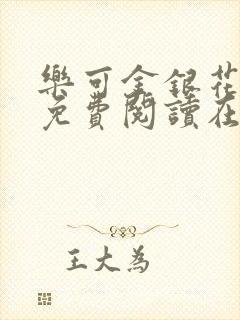 樂可金銀花
免費閱讀在
王大為